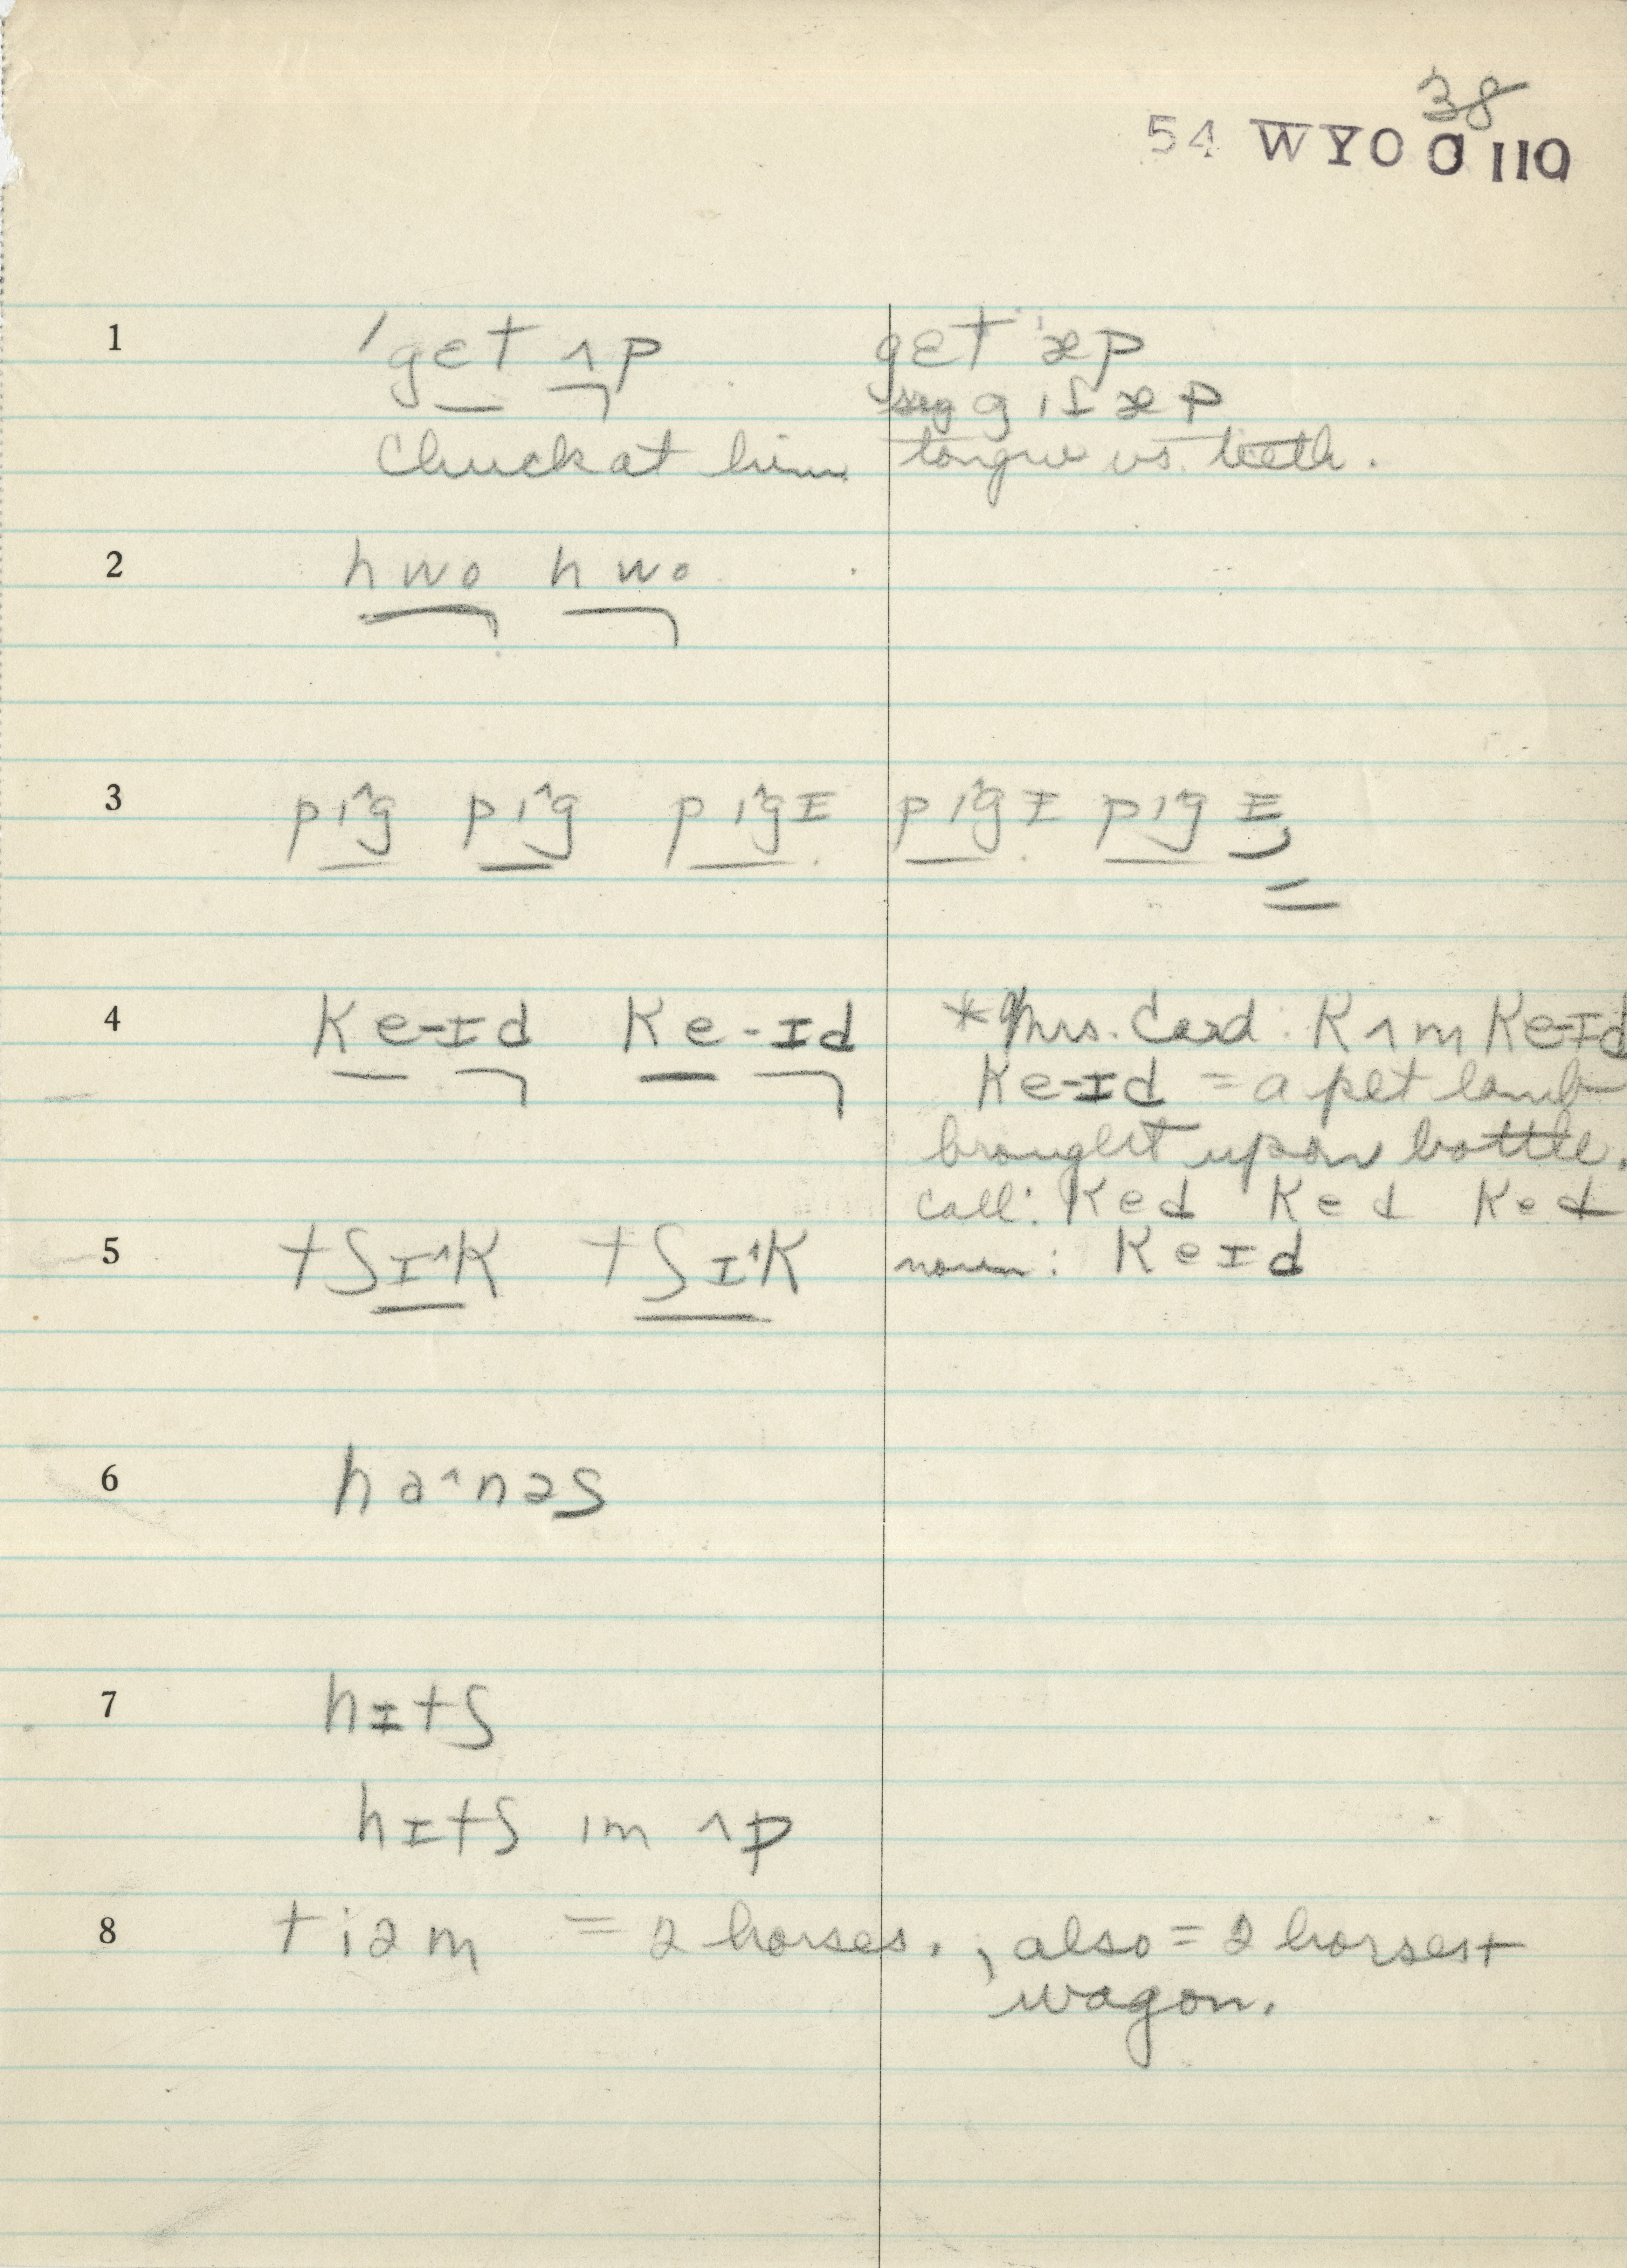 38
54 WYO O 110
1 ˈgɛt ʌp getˈəp
g ɪ ʃ ə p
Chuck at him tongue vs. teeth.
2 hwo hwo
3 pɪ^g pɪ^g pɪ^gɪ pɪ^gɪ pɪ^gɪ
4 ke-ɪd ke-ɪd *Mrs. Card: kʌm ke-ɪd
ke-ɪd = a pet lamb
brought up on bottle.
call: ked ked ked
5 tʃɪ^k tʃɪ^k noun: keɪd
6 ha^nəs
7 hɪtʃ
hɪtʃ ɪm ʌp
8 tiəm = 2 horses., also = 2 horses +
wagon.